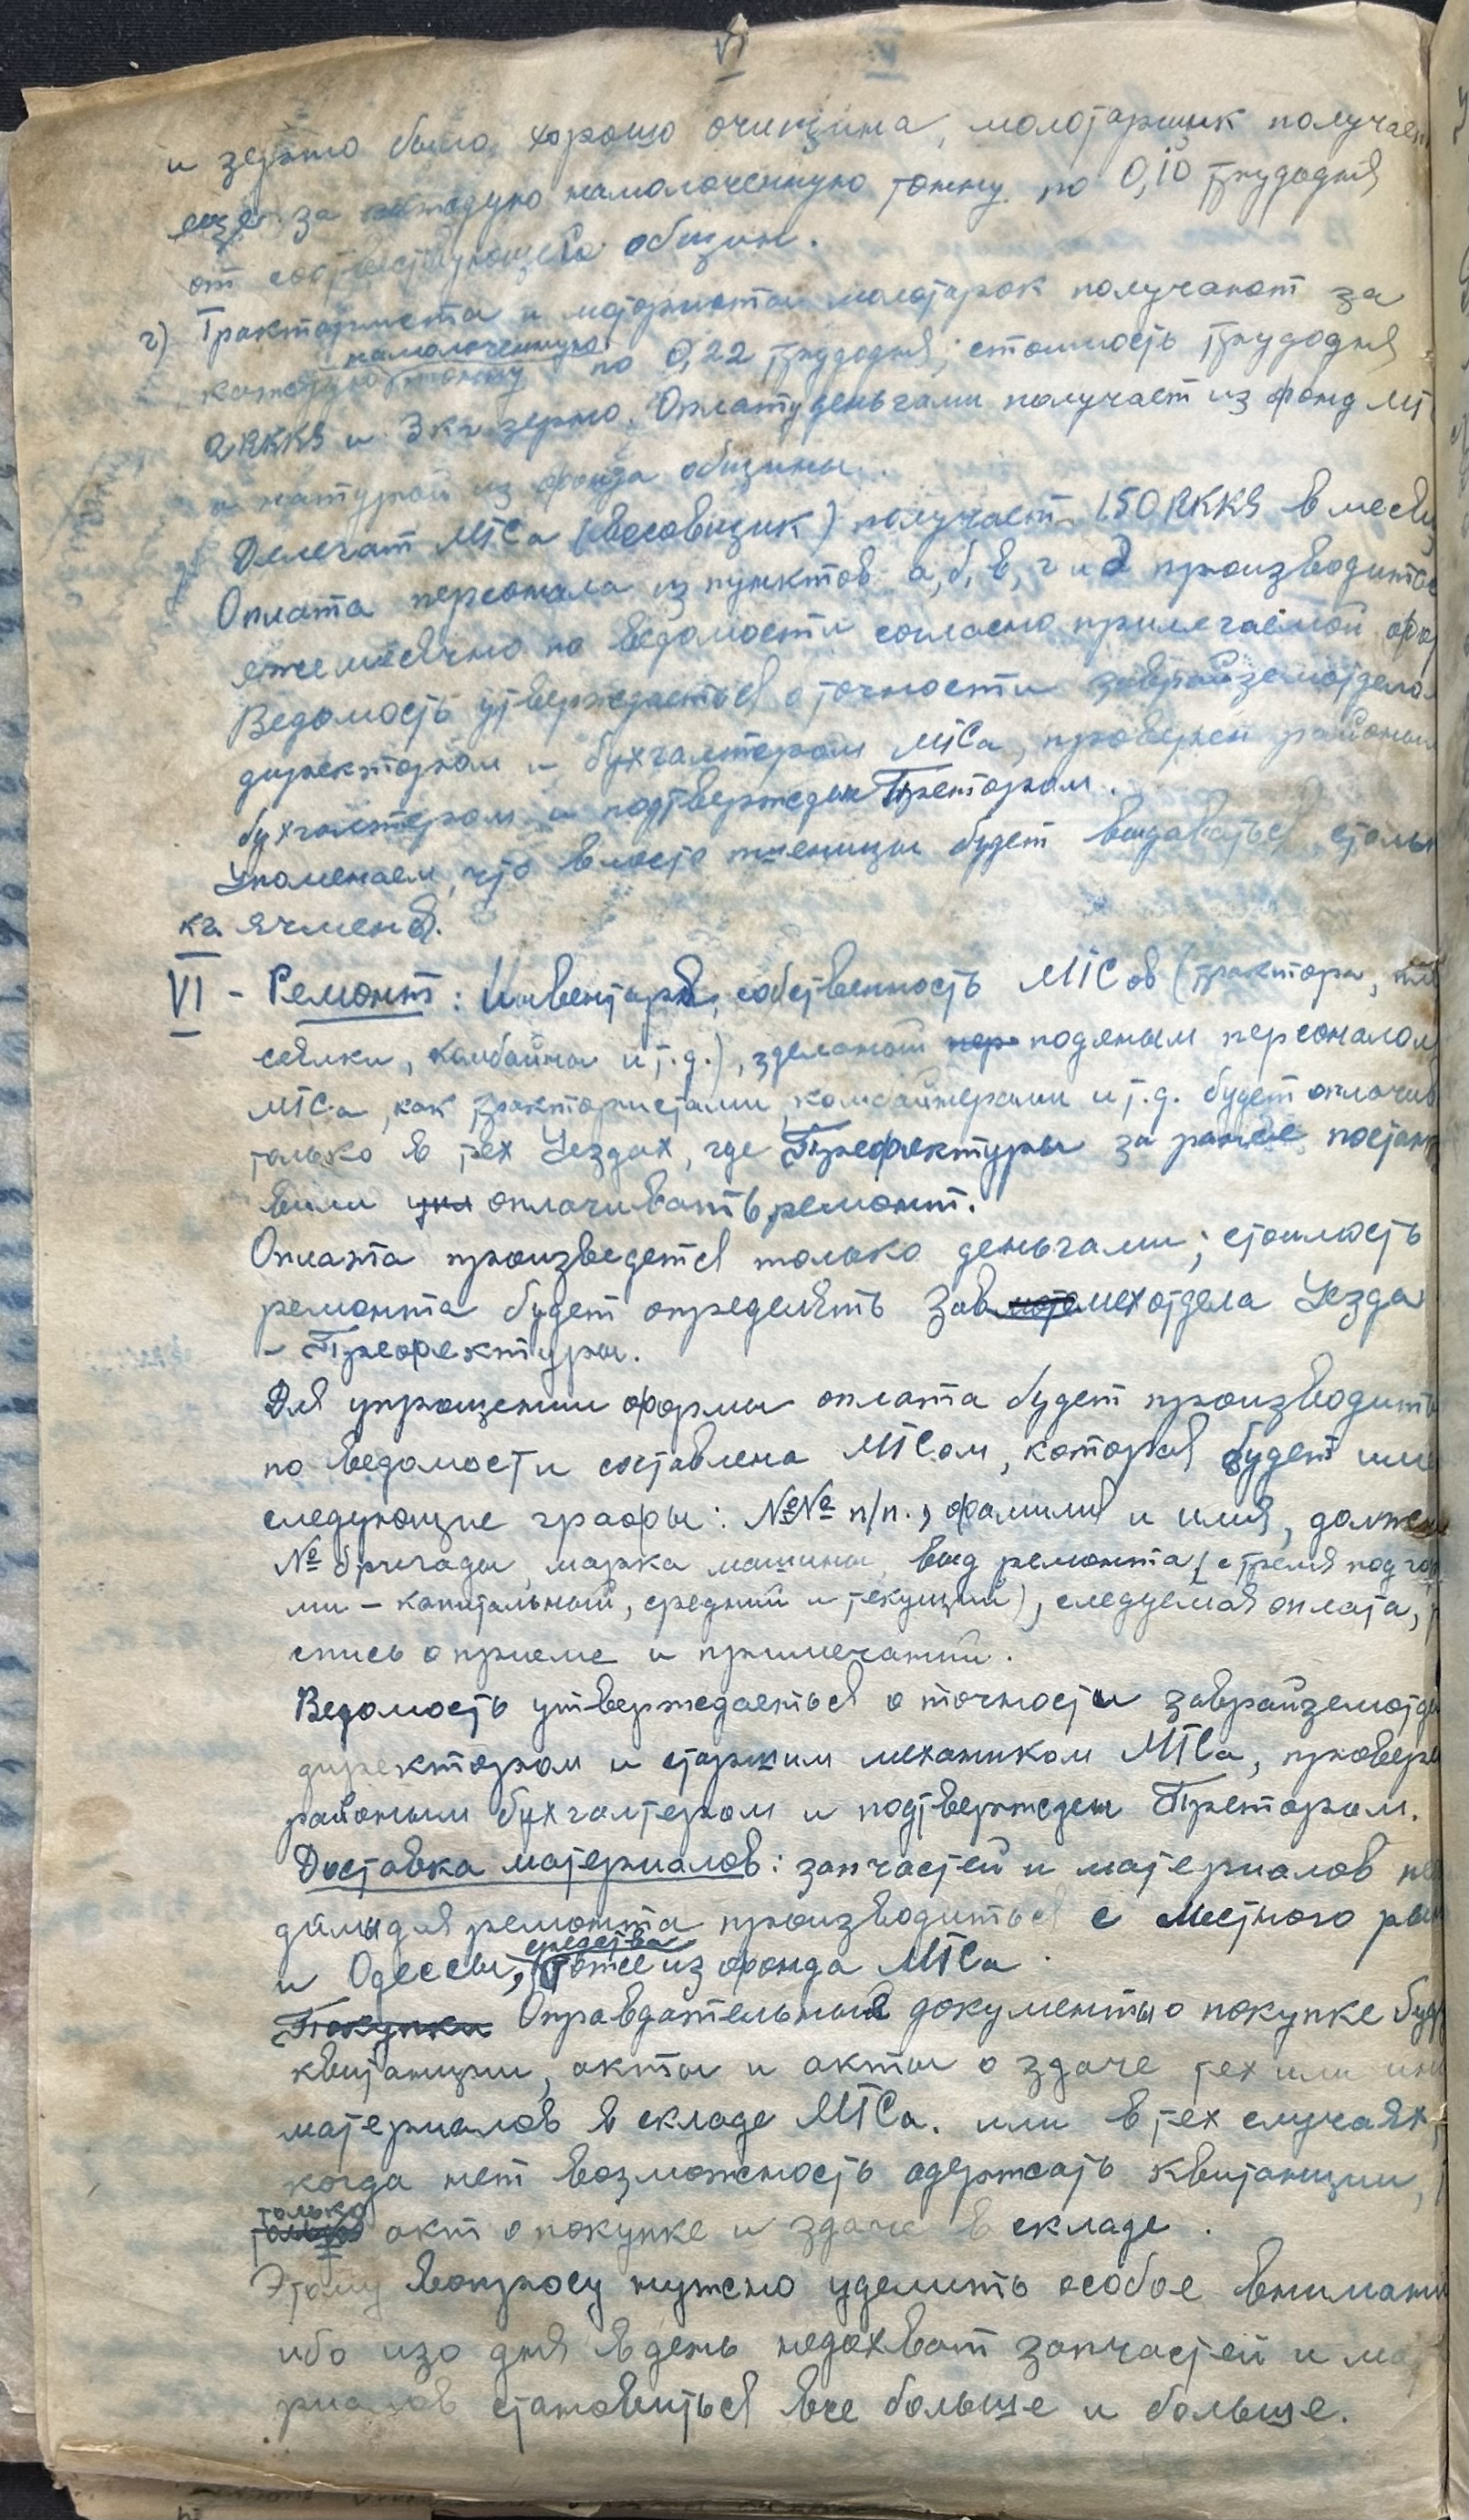 VI
и зерно было хорошо очищина, молотарщик получает
еще за каждую намолоченную тонну по 0,10 трудодня
от соответствующей общин.
г) Тракториста и моториста молотарок получают за
намолоченную
каждую тонну по 0,22 трудодня; стоимость трудодня
2 RKKS и 3 кг зерно. Оплату деньгами получает из фонд МТ
и натурой из фонда общины.
д) Делегат МТСа (весовщик) получает 150 RKKS в меся
Оплата персонала из пунктов а, б, в, г и д производитс
ежемесячно по ведомости согласно прилегаемой фор
Ведомость утверждаеться о точности заврайземотдело
директором и бухгалтером МТСа, проверен районым
бухгалтером и подтвержден Претором.
Упоменаем, что вместо пшеницы будет выдаваться столь
кг ячменя.
VI - Ремонт: Инвентаря, собственность МТСов (трактора, пл
сеялки, комбайны и т.д.), зделаный пер подяным персоналом
МТСа, как трактористами, комбайнерами и т.д. будет оплачив
только в тех Уездах, где Префектуры за ранее постан
вили оплачивать ремонт.
Оплата произведется только деньгами; стоимость
ремонта будет определять Зав мехотдела Уезда
- Префектуры.
Для упрощении формы оплата будет производить
по ведомости составлена МТСом, которая будет име
следующие графы: №№ п/п., фамилия и имя, должен
№ бригады, марка машины, вид ремонта (с тремя подгра
ми - капитальный, средний и текущий), следуемая оплата,
спись о приеме и примечаний.
Ведомость утверждаеться о точности заврайземотде
директором и старшим механиком МТСа, провере
районым бухгалтером и подтвержден Претором.
Доставка материалов: запчастей и материалов не
димы для ремонта производиться с местного ры
средства
и Одессы, тоже из фонда МТСа
Покупки Оправдательный документы о покупке буд
квитанции, акты и акты о здаче тех или ин
материалов в складе МТСа. или в тех случаях,
когда нет возможность одержать квитанции,
только
акт о покупке и здаче в складе.
Этому вопросу нужно уделить особое внимани
ибо изо дня в день недохват запчастей и ма
риалов становиться все больше и больше.